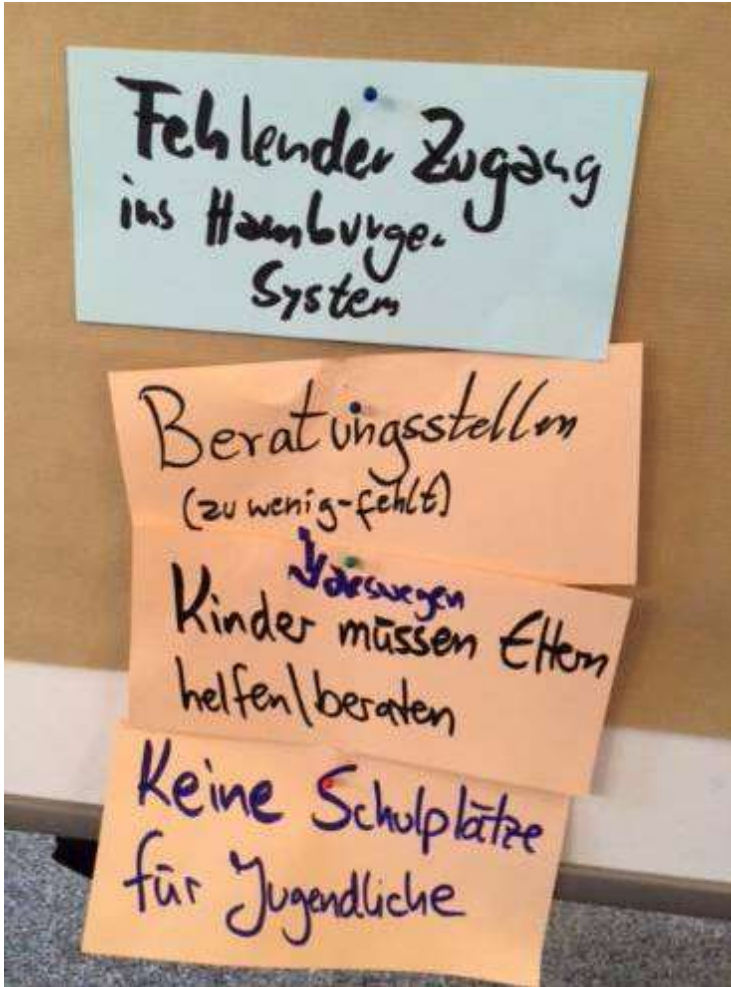 Fehlender Zugang
ins Hamburger
System
Beratungsstellen
(zu wenig-fehlt)
deswegen
Kinder müssen Eltern
helfen/beraten
Keine Schulplätze
für Jugendliche